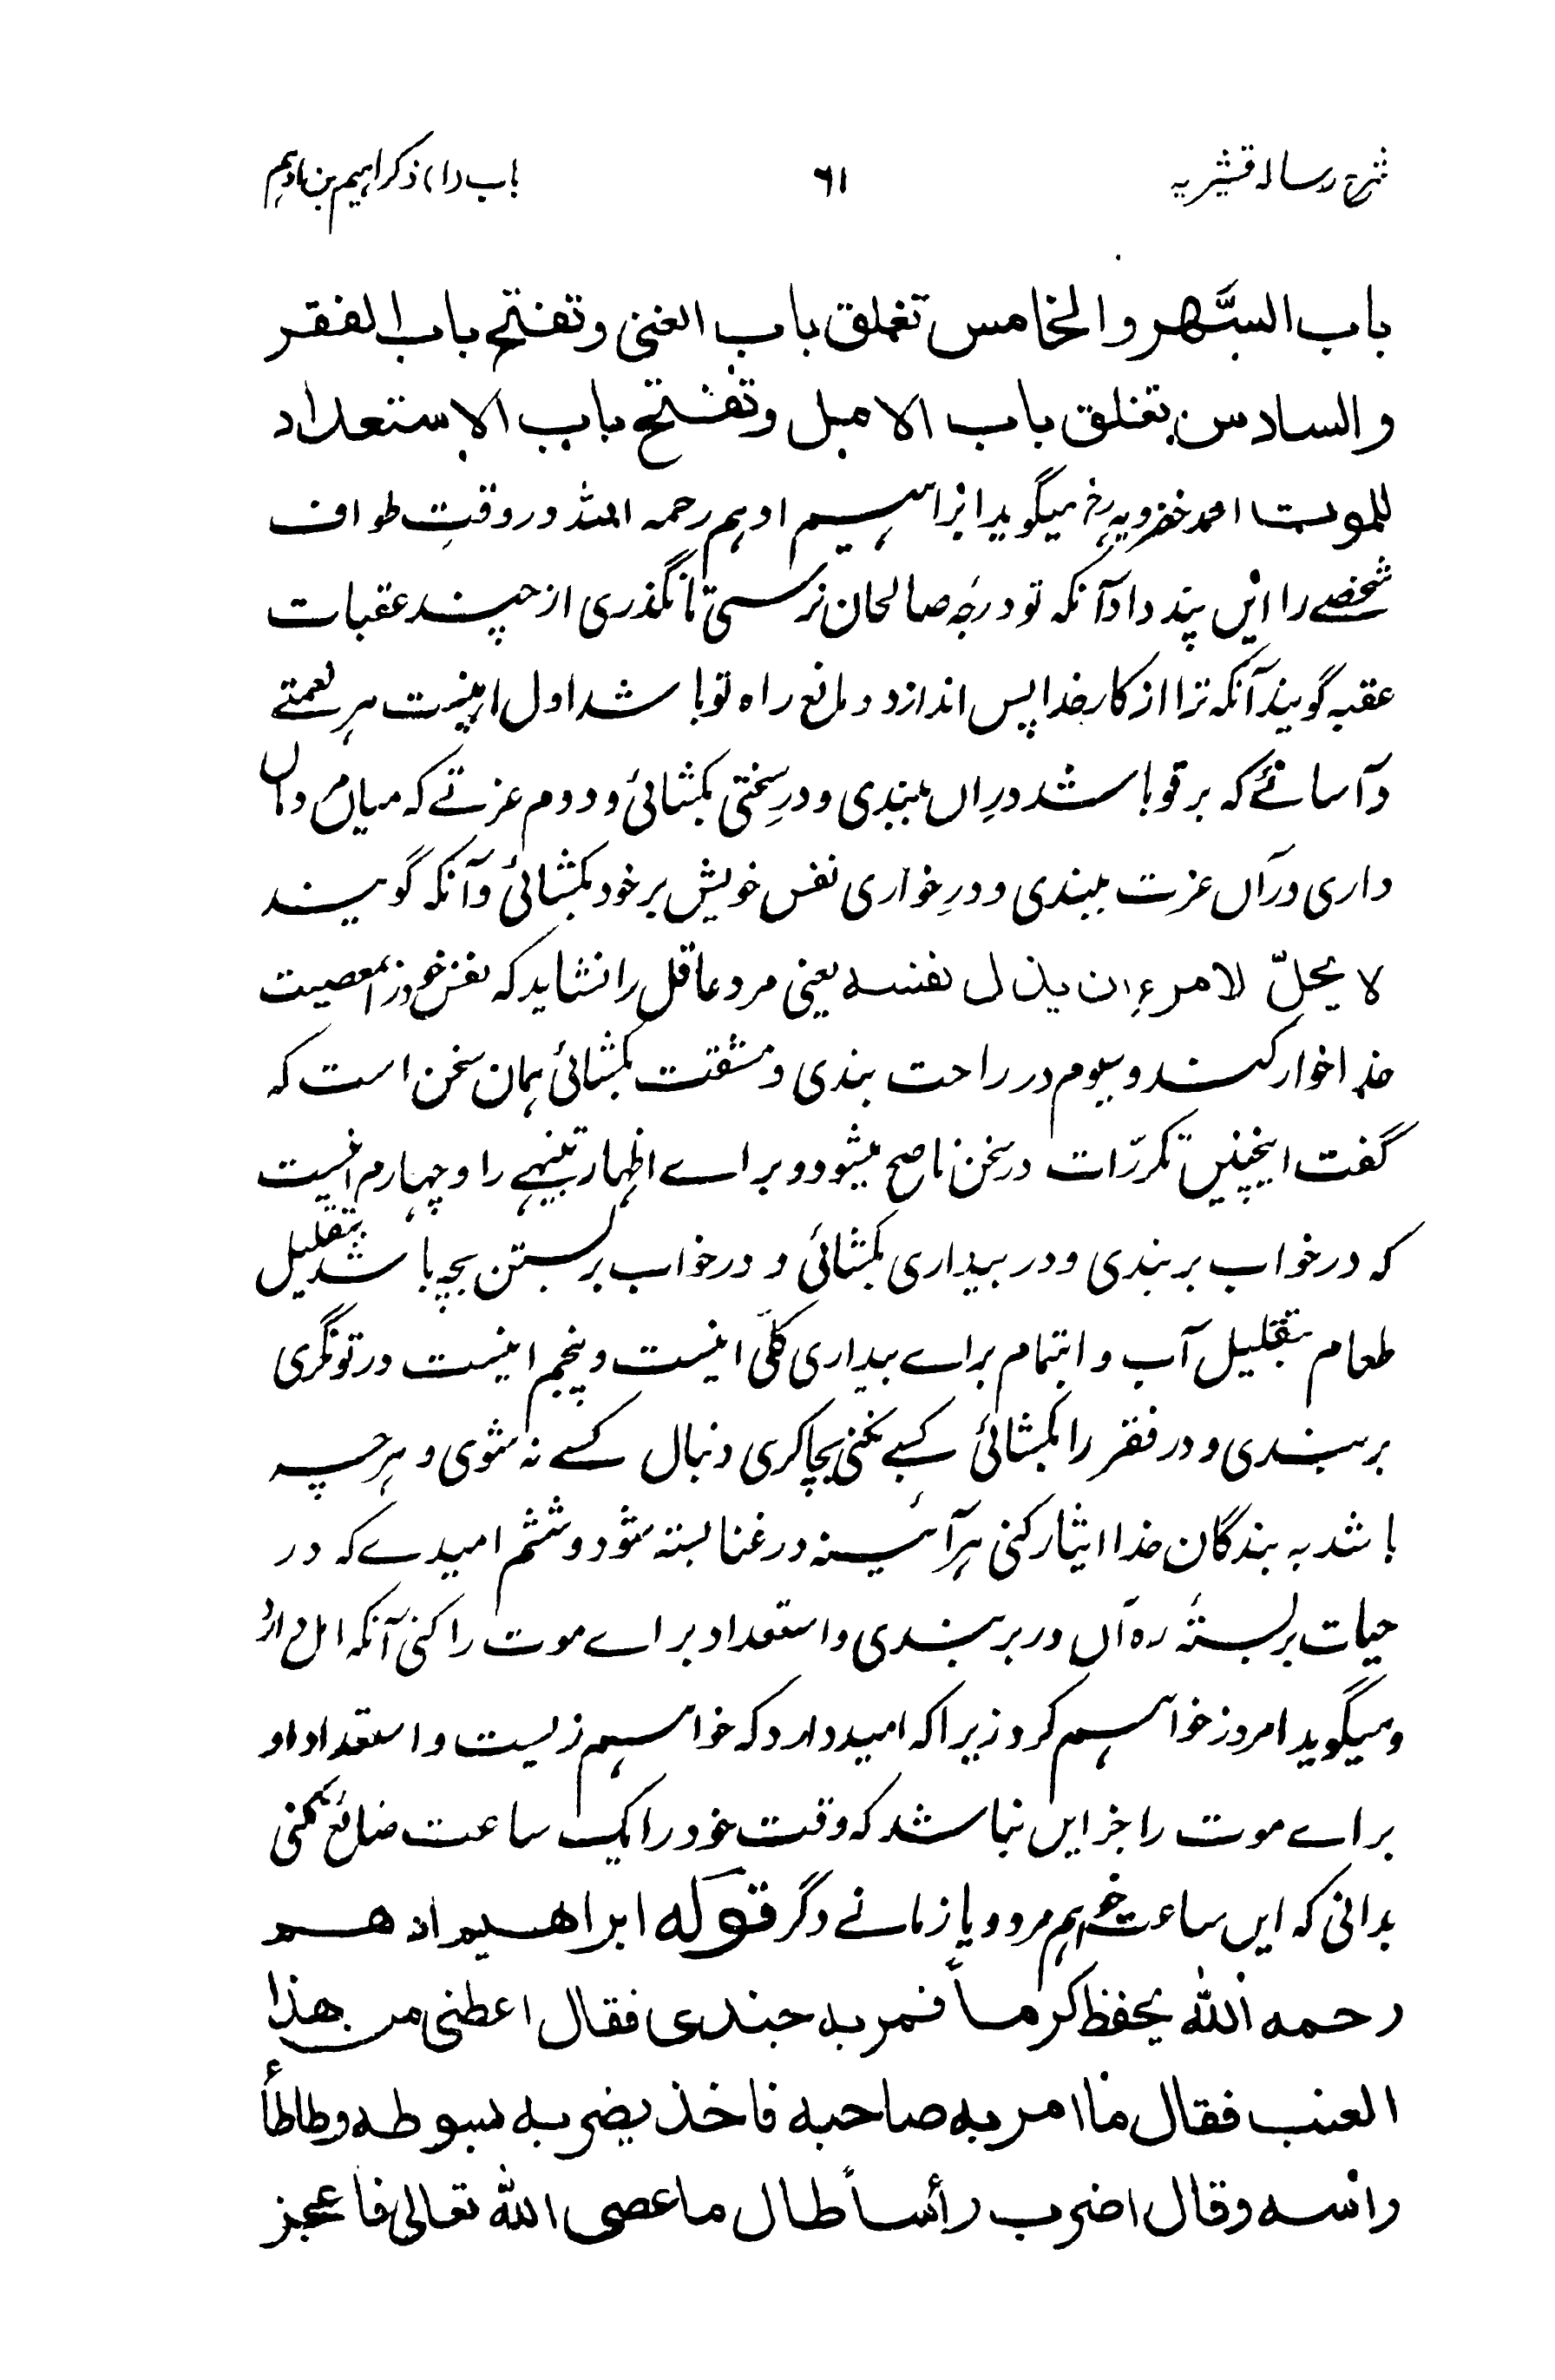 شرح رسالہ قشیریہ ۶۱ باب (۱) ذکر ابراہیم بن ادہم
باب السَّهر والخامس تغلق باب الغنى وتفتح باب الفقر
والسادس تغلق باب الامل وتفتح باب الاستعداد
للموت احمد خضرویہ رح میگوید ابراہیم ادہم رحمہ اللہ در وقتِ طواف
شخصے را ایں پند داد آنکہ تو درجۂ صالحان نرسی تا نگذری از چند عقبات
عقبہ گویند آنکہ ترا از کار خدا پس اندازد و مانع راہ تو باشد اول اینست ہر نعمتے
و آسانئے کہ بر تو باشد درِ آں ببندی و درِ سختی بکشائی و دوم عزتے کہ میان مردماں
داری در آں عزت ببندی و درِ خواری نفس خویش بر خود بکشائی و آنکہ گویند
لا يحلّ لامرءٍ ان يذل نفسه یعنی مرد عاقل را نشاید کہ نفس خود را بمعصیت
خدا خوار کند و سیوم در راحت بندی و مشقت بکشائی ہمان سخن است کہ
گفت اینچنیں تکررّات در سخن ناصح میشود و براے اظہار تنبیہے را و چہارم اینست
کہ در خواب بر بندی و در بیداری بکشائی و در خواب بر بستن بچہ باشد بتقلیل
طعام بتقلیل آب و اہتمام براے بیداری کلّی اینست و پنجم اینست در تونگری
بر بندی و در فقر را بکشائی کسبے نکنی بچاکری دنبال کسے نہ شوی و ہرچہ
باشد بہ بندگان خدا ایثار کنی ہر آئینہ در غنا بستہ شود و ششم امیدے کہ در
حیات بر بستۂ رہ آں در بر بندی و استعداد براے موت را کنی آنکہ امل دارد
و میگوید امروز خواہم کرد زیرا کہ امید دارد کہ خواہم زیست و استعداد او
براے موت را جز ایں نباشد کہ وقت خود را یک ساعت ضائع نکنی
بدانی کہ ایں ساعت خواہم مرد و یا زمانے دگر قوله ابراهيم ادهم
رحمه الله يحفظ كرماً فمر به جندى فقال اعطنى من هذا
العنب فقال ما امر به صاحبه فاخذ يضربه بسوطه وطاطأ
راسه وقال اضرب رأساً طال ما عصى الله تعالى فاعجز